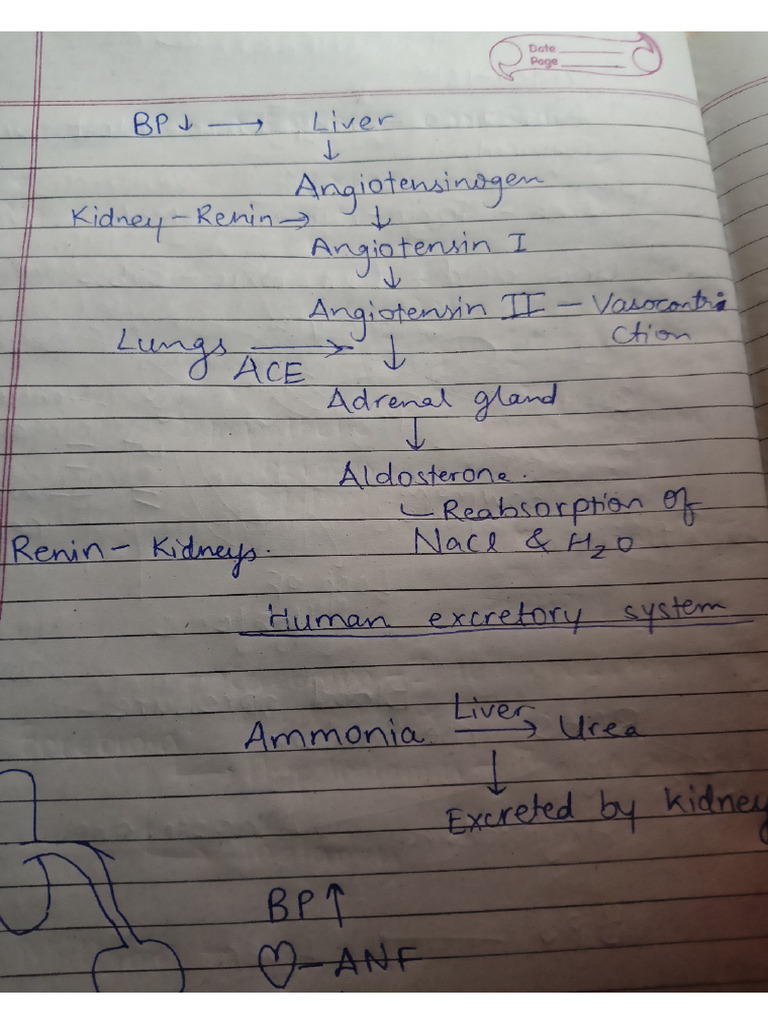 Date
Page
BP↓ → Liver
↓
Angiotensinogen
Kidney - Renin → ↓
Angiotensin I
↓
Angiotensin II - Vasocontri
ction
Lungs → ↓
ACE
Adrenal gland
↓
Aldosterone.
Reabsorption of
Renin - Kidneys. NaCl & H₂O
Human excretory system
Liver
Ammonia → Urea
↓
Excreted by kidney
BP↑
♡ - ANF